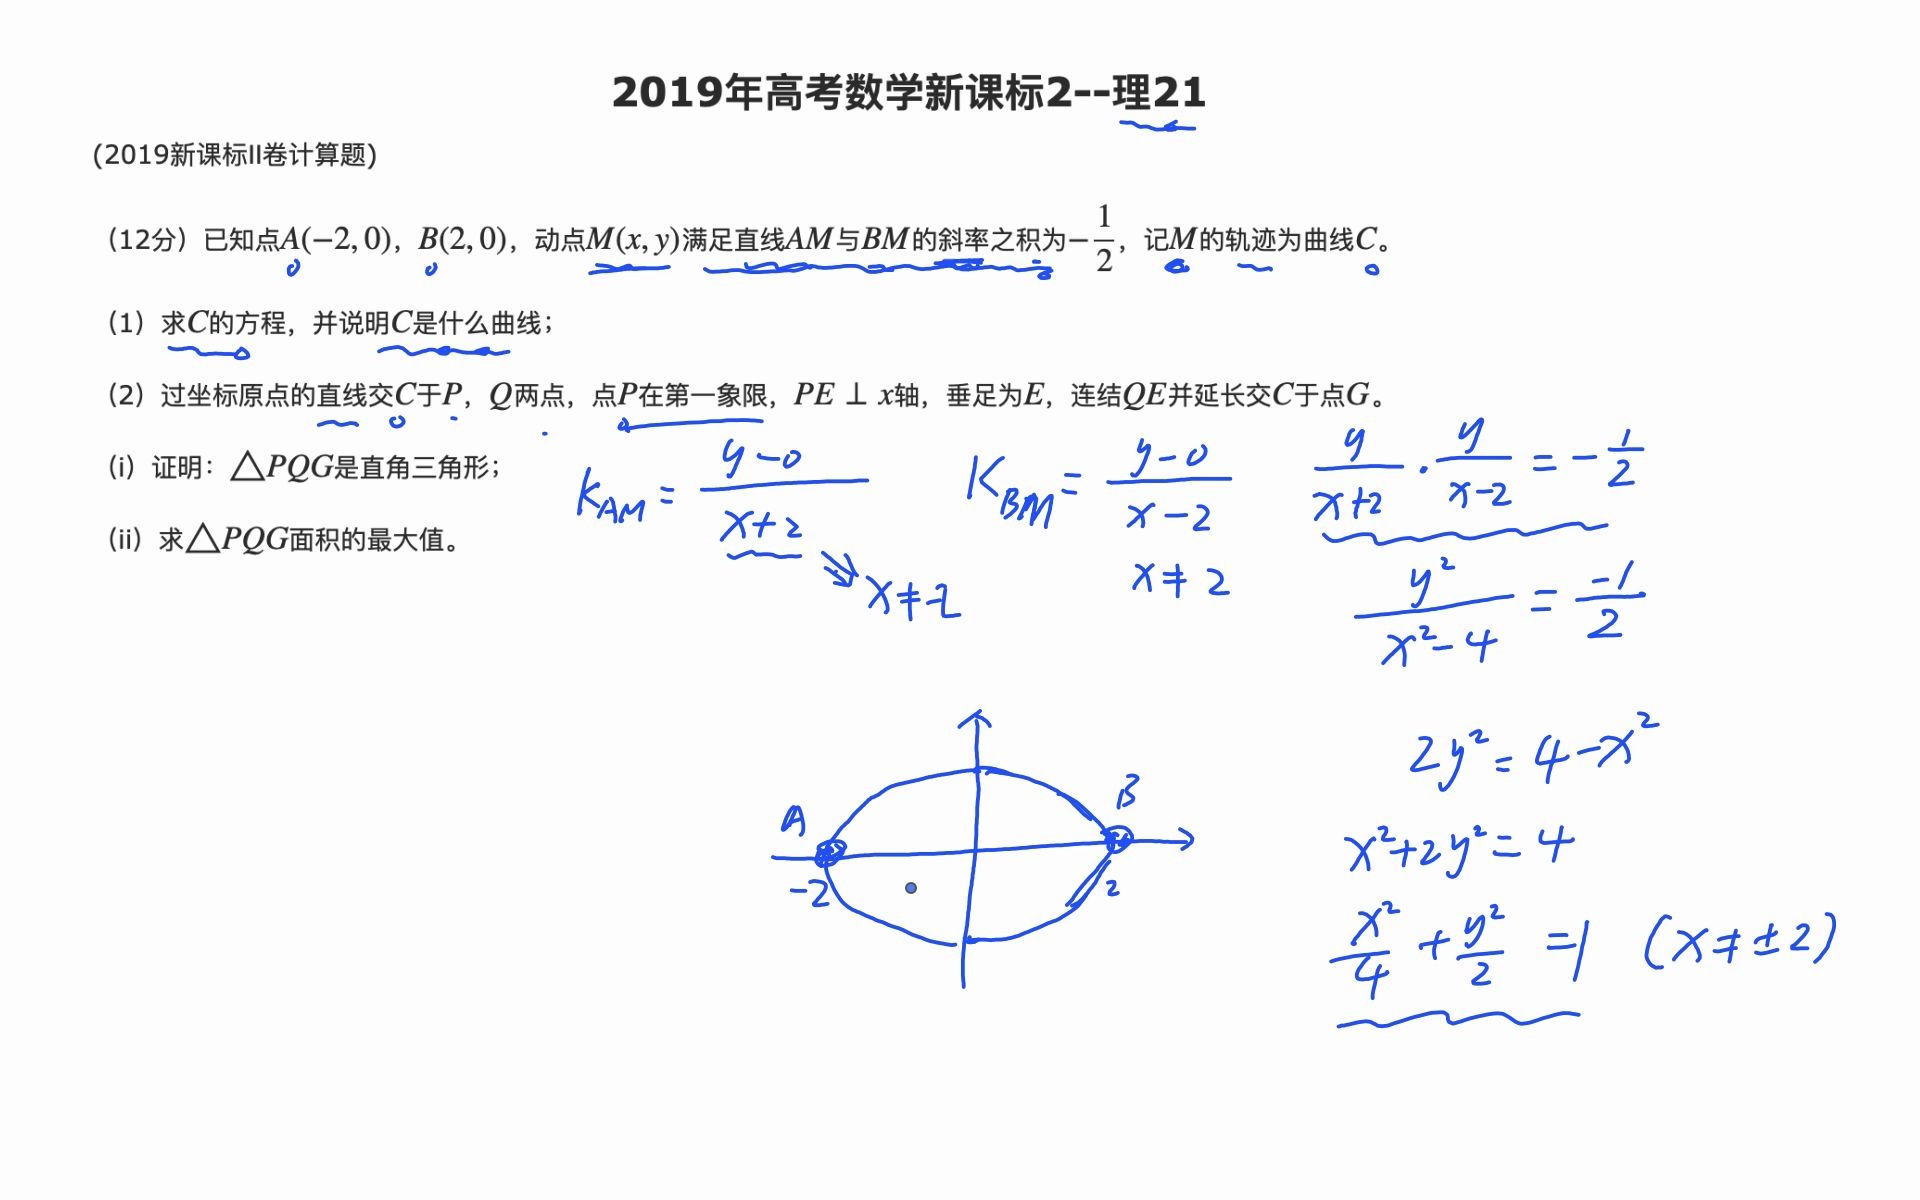 2019年高考数学新课标2--理21
(2019新课标II卷计算题)
(12分) 已知点A(−2, 0)，B(2, 0)，动点M(x, y)满足直线AM与BM的斜率之积为−1/2，记M的轨迹为曲线C。
(1) 求C的方程，并说明C是什么曲线；
(2) 过坐标原点的直线交C于P，Q两点，点P在第一象限，PE ⊥ x轴，垂足为E，连结QE并延长交C于点G。
(i) 证明：△PQG是直角三角形；
(ii) 求△PQG面积的最大值。
K_AM = (y-0)/(x+2)
x ≠ -2
K_BM = (y-0)/(x-2)
x ≠ 2
y/(x+2) · y/(x-2) = -1/2
y²/(x²-4) = -1/2
2y² = 4-x²
x²+2y² = 4
x²/4 + y²/2 = 1 (x ≠ ±2)
A
B
-2
2